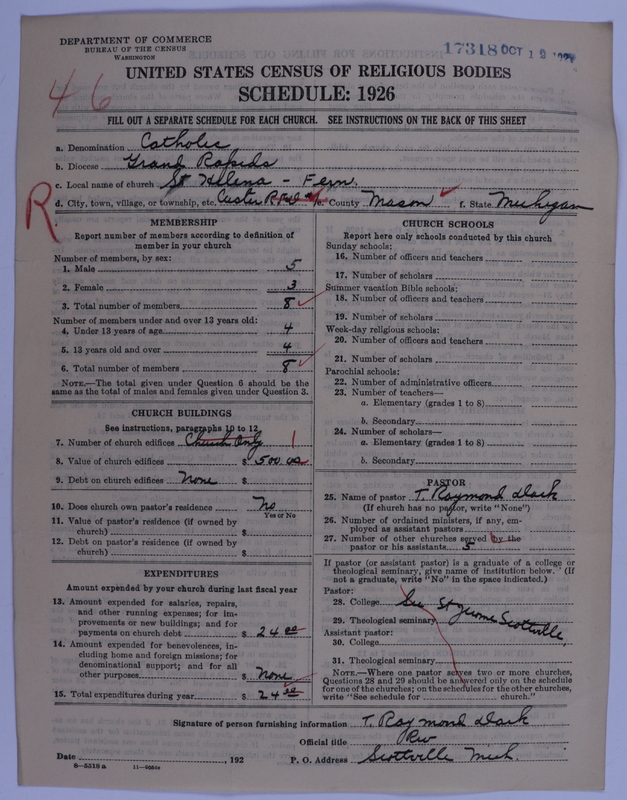 DEPARTMENT OF COMMERCE
BUREAU OF THE CENSUS
WASHINGTON
17318 OCT 19
UNITED STATES CENSUS OF RELIGIOUS BODIES
SCHEDULE: 1926
46
FILL OUT A SEPARATE SCHEDULE FOR EACH CHURCH. SEE INSTRUCTIONS ON THE BACK OF THIS SHEET
a. Denomination Catholic
b. Diocese Grand Rapids
c. Local name of church St Helena - Fern.
R
d. City, town, village, or township, etc. Custer R.F.D. e. County Mason f. State Michigan
MEMBERSHIP
Report number of members according to definition of
member in your church
Number of members, by sex:
1. Male 5
2. Female 3
3. Total number of members 8
Number of members under and over 13 years old:
4. Under 13 years of age 4
5. 13 years old and over 4
6. Total number of members 8
NOTE.—The total given under Question 6 should be the
same as the total of males and females given under Question 3.
CHURCH BUILDINGS
See instructions, paragraphs 10 to 12
7. Number of church edifices Church Only 1
8. Value of church edifices $ 500.00
9. Debt on church edifices None $
10. Does church own pastor's residence No
Yes or No
11. Value of pastor's residence (if owned by
church) $
12. Debt on pastor's residence (if owned by
church) $
EXPENDITURES
Amount expended by your church during last fiscal year
13. Amount expended for salaries, repairs,
and other running expenses; for im-
provements or new buildings; and for
payments on church debt $ 24 00
14. Amount expended for benevolences, in-
cluding home and foreign missions; for
denominational support; and for all
other purposes $ None
15. Total expenditures during year $ 24 00
CHURCH SCHOOLS
Report here only schools conducted by this church
Sunday schools:
16. Number of officers and teachers
17. Number of scholars
Summer vacation Bible schools:
18. Number of officers and teachers
19. Number of scholars
Week-day religious schools:
20. Number of officers and teachers
21. Number of scholars
Parochial schools:
22. Number of administrative officers
23. Number of teachers—
a. Elementary (grades 1 to 8)
b. Secondary
24. Number of scholars—
a. Elementary (grades 1 to 8)
b. Secondary
PASTOR
25. Name of pastor T. Raymond
(If church has no pastor, write "None")
26. Number of ordained ministers, if any, em-
ployed as assistant pastors
27. Number of other churches served by the
pastor or his assistants 5
If pastor (or assistant pastor) is a graduate of a college or
theological seminary, give name of institution below. (If
not a graduate, write "No" in the space indicated.)
Pastor:
28. College See St Jerome Scottville,
29. Theological seminary
Assistant pastor:
30. College
31. Theological seminary
NOTE.—Where one pastor serves two or more churches,
Questions 28 and 29 should be answered only on the schedule
for one of the churches; on the schedules for the other churches,
write "See schedule for church."
Signature of person furnishing information T. Raymond
Official title Rev
Date , 192 P. O. Address Scottville Mich.
8—5518 a